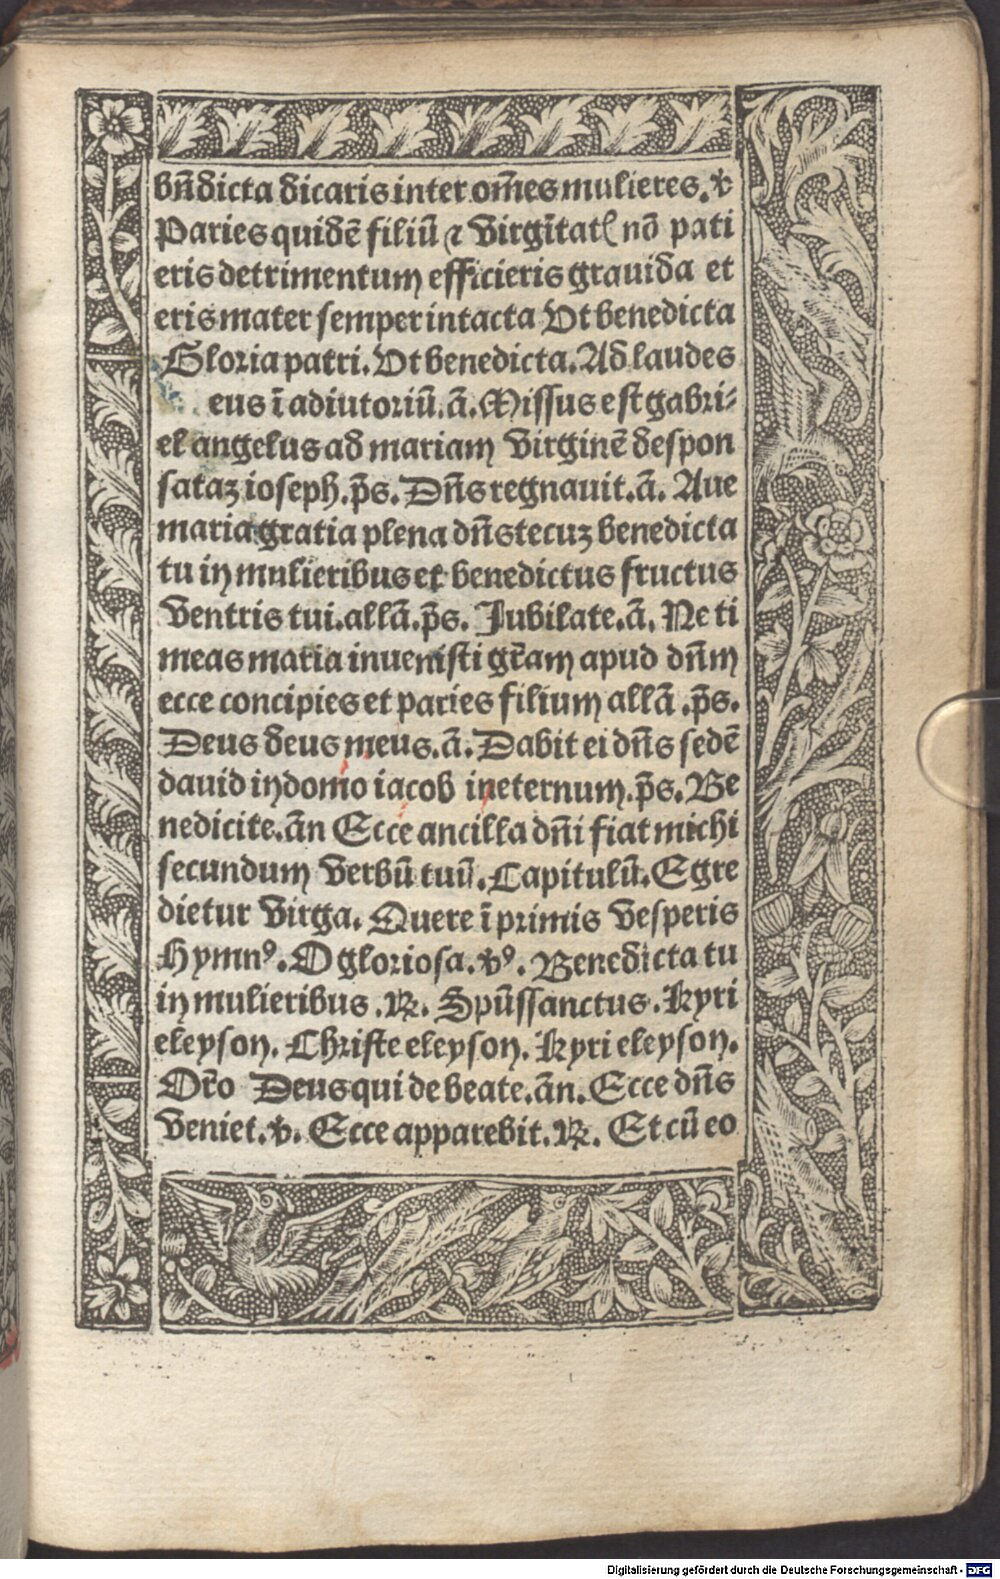 bn̄dicta dicaris inter om̄es mulieres. ℣
Paries quidē filiū ⁊ virgītatꝭ nō pati
eris detrimentum efficieris grauida et
eris mater semper intacta Vt benedicta
Gloria patri. Vt benedicta. Ad laudes
eus ī adiutoriū. ā. Missus est gabri-
el angelus ad mariam virginē despon
sataꝫ ioseph. p̄s. Dn̄s regnauit. ā. Aue
maria gratia plena dn̄s tecuꝫ benedicta
tu in mulieribus et benedictus fructus
ventris tui. allā. p̄s. Jubilate. ā. Ne ti
meas maria inuenisti gr̄am apud dn̄m
ecce concipies et paries filium allā. p̄s.
Deus deus meus. ā. Dabit ei dn̄s sedē
dauid in domo iacob in eternum. p̄s. Be
nedicite. ān Ecce ancilla dn̄i fiat michi
secundum verbū tuū. Capitulū. Egre
dietur virga. Quere ī primis vesperis
Hymnꝰ. O gloriosa. ℣ꝰ. Benedicta tu
in mulieribus. ℞. Spūssanctus. Kyri
eleyson. Christe eleyson. Kyri eleyson.
Or̄o Deus qui de beate. ān. Ecce dn̄s
veniet. ℣. Ecce apparebit. ℞. Et cū eo
Digitalisierung gefördert durch die Deutsche Forschungsgemeinschaft - DFG